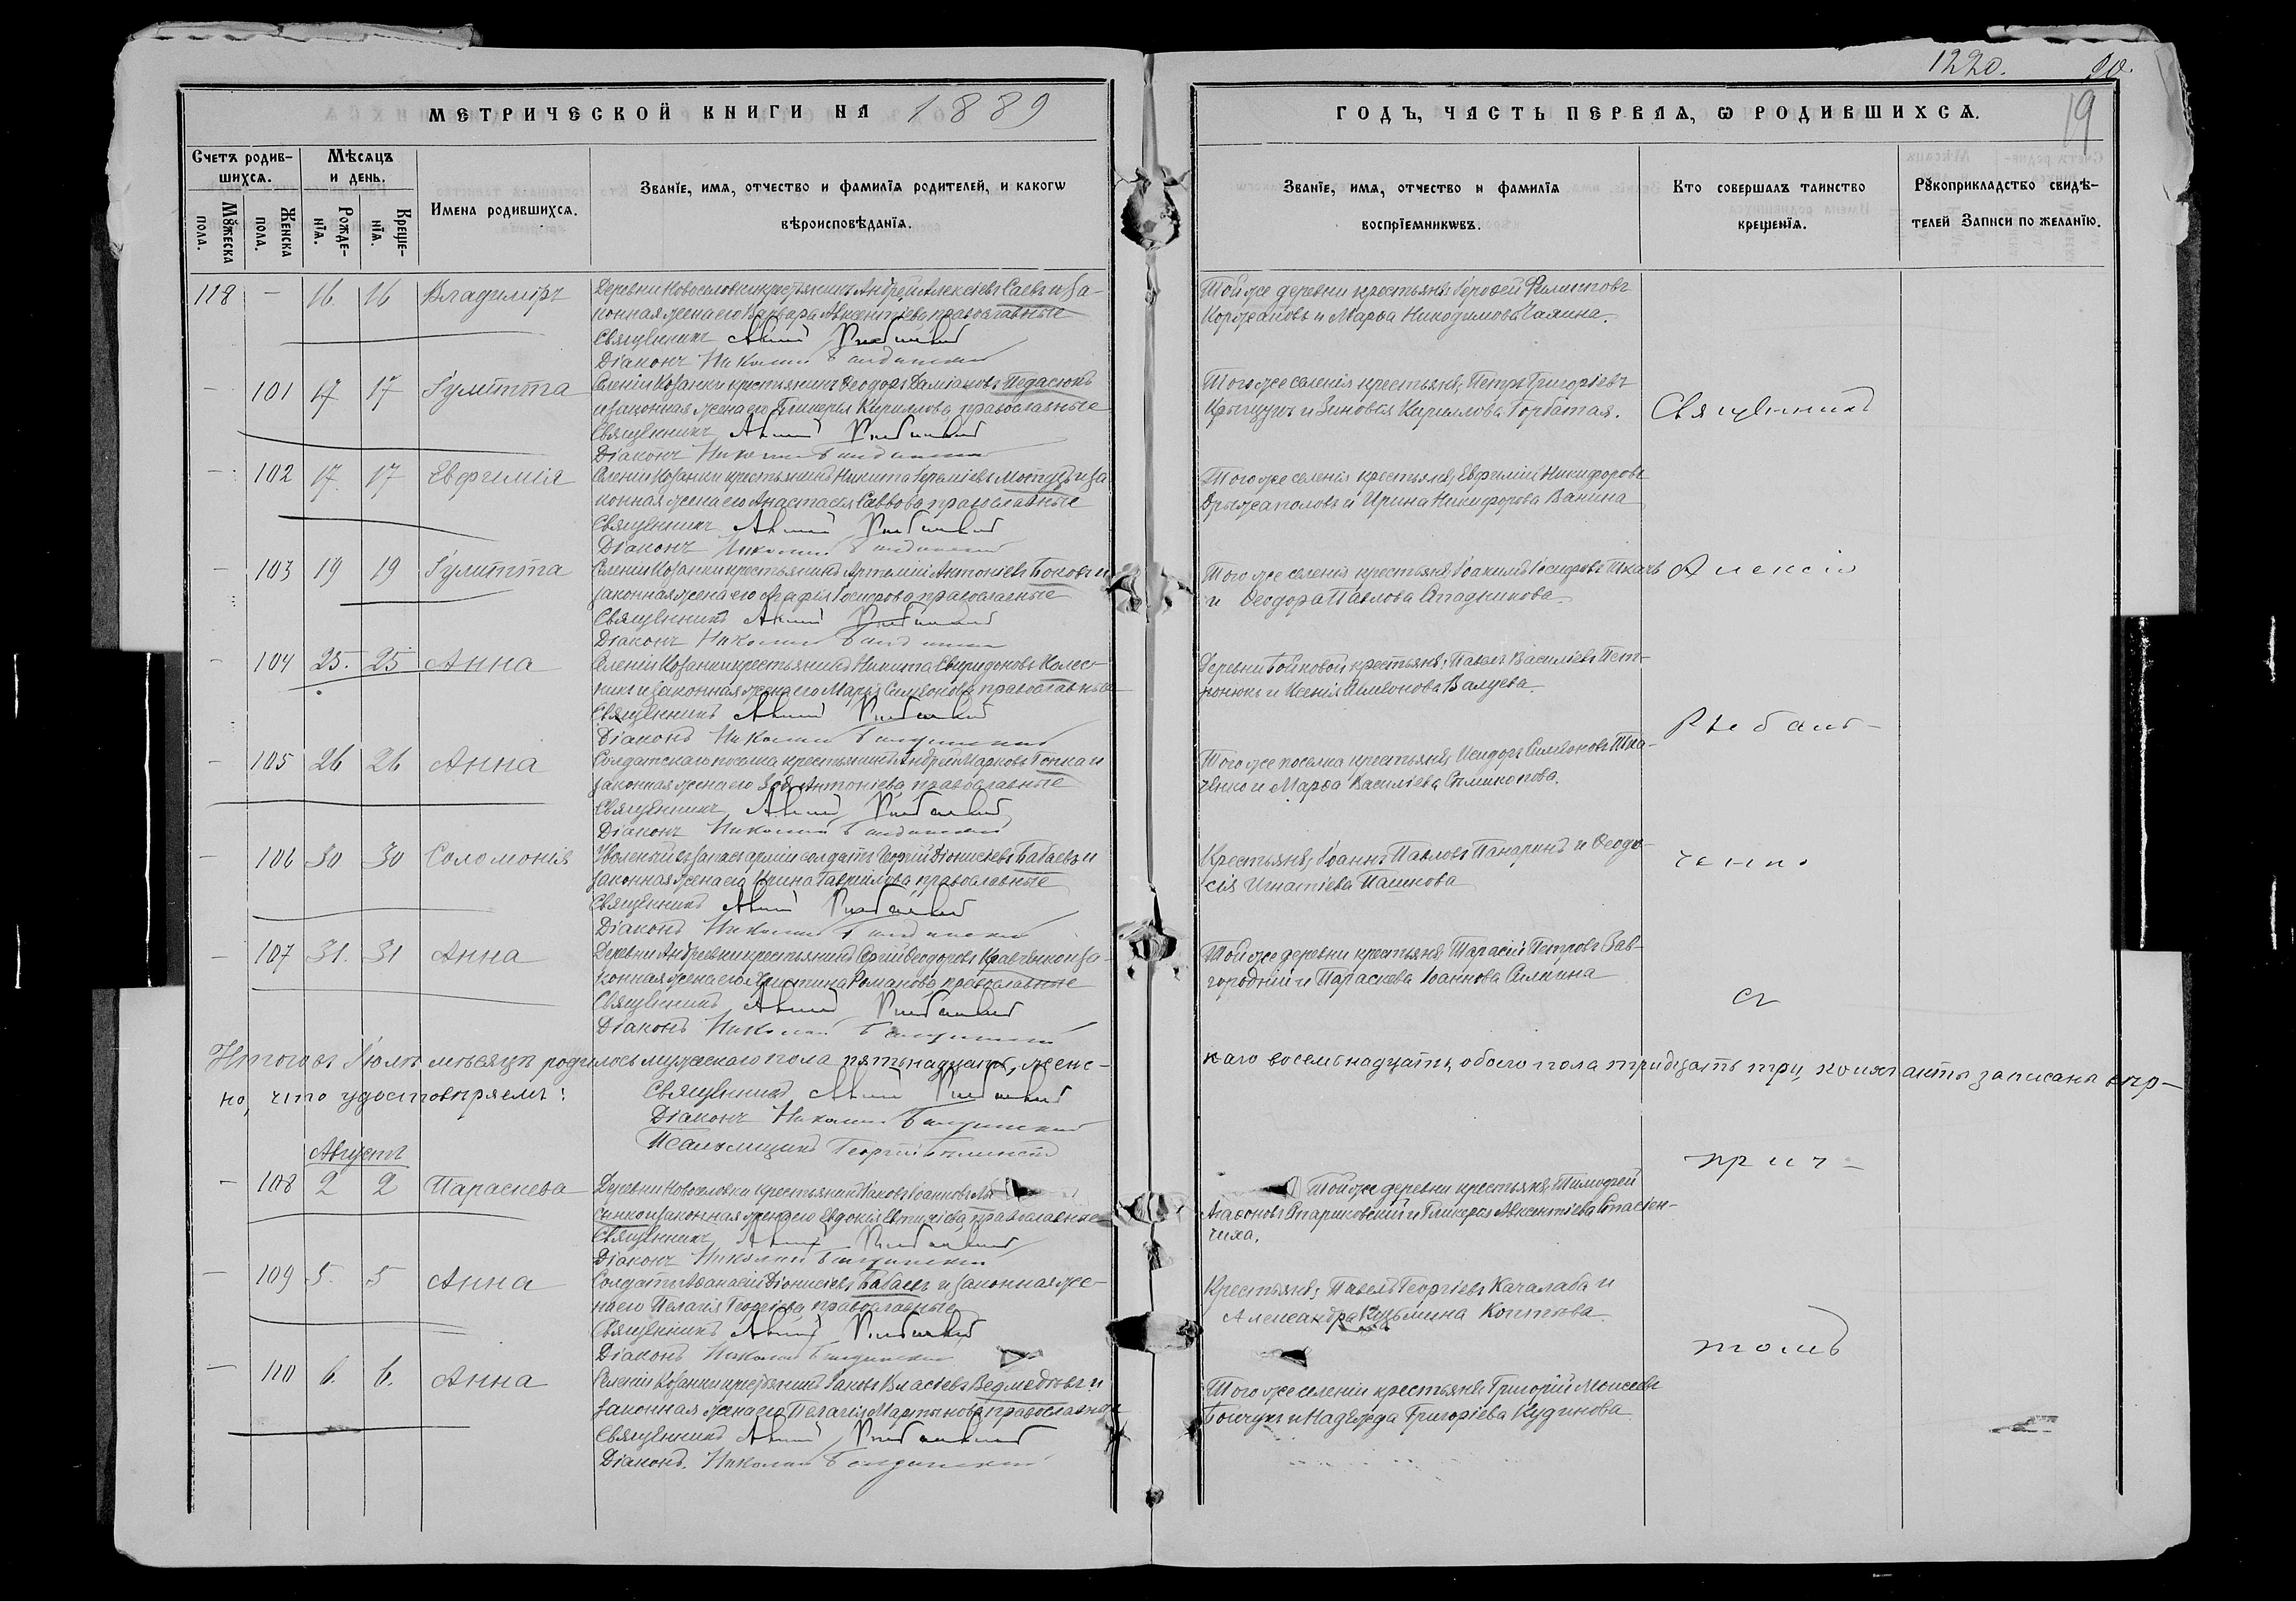 1220.
20.
19
МЕТРИЧЕСКОЙ КНИГИ НА 1889
ГОДЪ, ЧАСТЬ ПЕРВАЯ, Ѡ РОДИВШИХСѦ.
Счетъ родив-
шихсѧ.
Мѣсѧцъ
и день.
Мꙋжеска
пола.
Женска
пола.
Рожде-
нїѧ.
Креще-
нїѧ.
Имена родившихсѧ.
Званїе, имѧ, отчество и фамилїѧ родителей, и какогѡ
вѣроисповѣданїѧ.
Званїе, имѧ, отчество и фамилїѧ
воспрїемникѡвъ.
Кто совершалъ таинство
крещенїѧ.
Рꙋкоприкладство свидѣ-
телей записи по желанїю.
118 — 16. 16 Владиміръ
Деревни Новоселовки крестьянинъ Андрей Алексіевъ Саевъ и за-
конная жена его Варвара Авксентіева, православные
Священникъ Алексій Рыбальченко
Діаконъ Николай
Той же деревни крестьяне: Іерофей Филиповъ
Коржановъ и Марѳа Никодимова Чаляина.
— 101 17 17 Іулитта
Селенія Козанки крестьянинъ Ѳеодоръ Даміановъ Педасюкъ
и законная жена его Гликерія Кириллова, православные
Священникъ Алексій Рыбальченко
Діаконъ Николай
Того же селенія крестьяне: Петръ Григоріевъ
и Зиновія Кириллова Горбатая.
Священникъ
— 102 17. 17 Евфимія
Селенія Козанки крестьянинъ Никита Іереміевъ и за
конная жена его Анастасія Саввова, православные
Священникъ Алексій Рыбальченко
Діаконъ Николай
Того же селенія крестьяне, Евфимій Никифоровъ
Држаполовъ и Ирина Никифорова Ванина
— 103 19 19 Іулитта
Селенія Козанки крестьянинъ Артемій Антоніевъ Боковъ и
законная жена его Агафія Іосифова православные
Священникъ Алексій Рыбальченко
Діаконъ Николай
Того же селенія крестьяне, Іоакимъ Іосифовъ Ткачъ
и Ѳеодора Павлова
Алексій
— 104 25. 25 Анна
Селенія Козанки крестьянинъ Никита Спиридоновъ Колес-
никъ и законная жена его Марія Симеонова православные
Священникъ Алексій Рыбальченко
Діаконъ Николай
Деревни Бойковой крестьяне: Павелъ Василіевъ Пет-
ронюкъ и Ксенія Симеонова Валуева.
Рыбаль-
— 105 26 26 Анна
Солдатскаго поселка крестьянинъ Андрей Марковъ Гонка и
законная жена его Зоя Антоніева, православные
Священникъ Алексій Рыбальченко
Діаконъ Николай
Того же поселка крестьяне, Исидоръ Симеоновъ Тка-
ченко и Марѳа Василіева
— 106 30 30 Соломонія
Уволенный въ запасъ арміи солдатъ Георгій Діонисіевъ Бабаевъ и
законная жена его Ирина Гавриилова, православные
Священникъ Алексій Рыбальченко
Діаконъ Николай
Крестьяне, Іоаннъ Павловъ Панаринъ и Ѳеодо-
сія Игнатіева Пашкова
ченко
— 107 31. 31 Анна
Деревни Андреевки крестьянинъ Сергій Ѳеодоровъ Кравченко и за-
конная жена его Христина Романова, православные
Священникъ Алексій Рыбальченко
Діаконъ Николай
Той же деревни крестьяне Тарасій Петровъ Зав-
городній и Параскева Іоаннова Силкина
съ
Итого въ Іюлѣ мѣсяцѣ родилось мужескаго пола пятьнадцать, женс-
каго восемьнадцать, обоего пола тридцать три, коихъ акты записаны вѣр-
но, что удостовѣряемъ:
Священникъ Алексій Рыбальченко
Діаконъ Николай
Псаломщикъ Георгій
прич-
Августъ
— 108 2 2 Параскева
Деревни Новоселовки крестьянинъ Іаковъ Іоанновъ
сенко и законная жена его Евдокія Евтихіева, православные
Священникъ Алексій Рыбальченко
Діаконъ Николай
Той же деревни крестьяне, Тимоѳей
Агаѳоновъ Стариковскій и Гликерія Авксентіева Спасен-
чиха.
— 109 5. 5 Анна
Солдатъ Аѳанасій Діонисіевъ Бабаевъ и законная же-
на его Пелагія Георгіева, православные
Священникъ Алексій Рыбальченко
Діаконъ Николай
Крестьяне, Павелъ Георгіевъ Качалаба и
Александра Кузьмина Коптева.
томъ
— 110 6. 6. Анна
Селенія Козанки крестьянинъ Іаковъ Власіевъ Ведмедовъ и
законная жена его Пелагія Мартынова православные
Священникъ Алексій Рыбальченко
Діаконъ. Николай
Того же селенія крестьяне Григорій Моисеевъ
Бончукъ и Надежда Григоріева Кудинова.